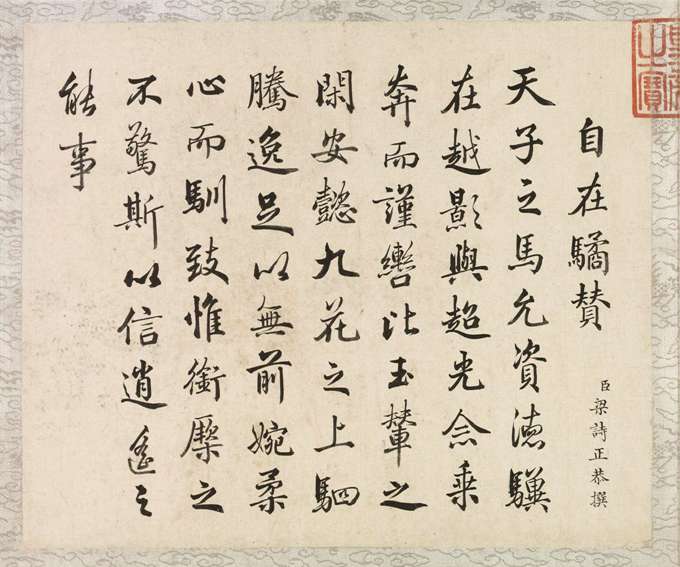 自在驈賛
臣梁詩正恭撰
天子之馬允資德驥
在越影與超光念乗
奔而謹轡比玉輦之
閑安懿九花之上駟
騰逸足以無前婉柔
心而馴致惟銜橜之
不驚斯以信逍遙之
能事
之寶